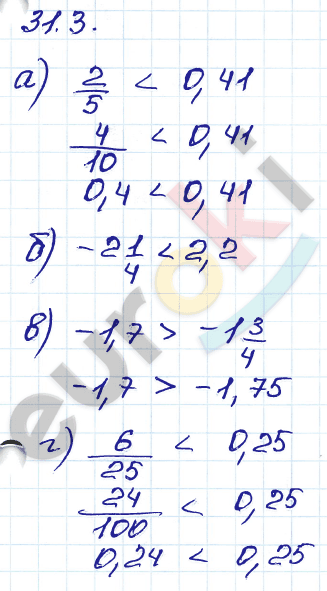 31.3.
а) 2/5 < 0,41
4/10 < 0,41
0,4 < 0,41
б) -2 1/4 < 2,2
в) -1,7 > -1 3/4
-1,7 > -1,75
г) 6/25 < 0,25
24/100 < 0,25
0,24 < 0,25
euroki